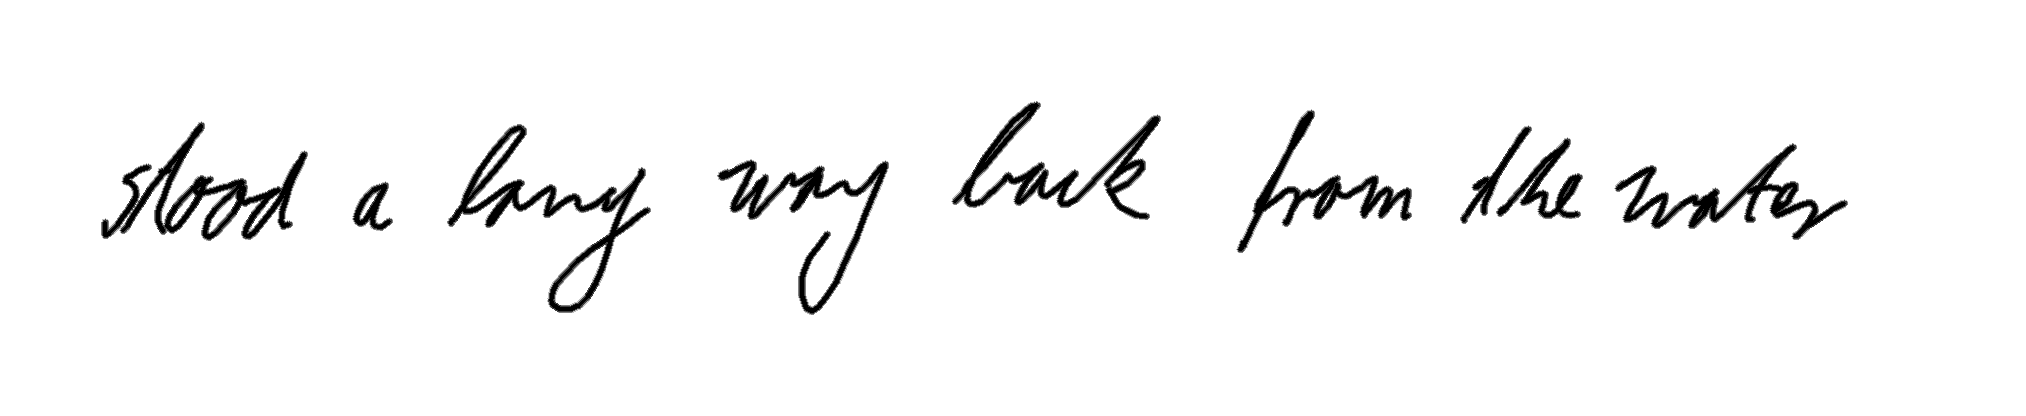 stood a long way back from the water